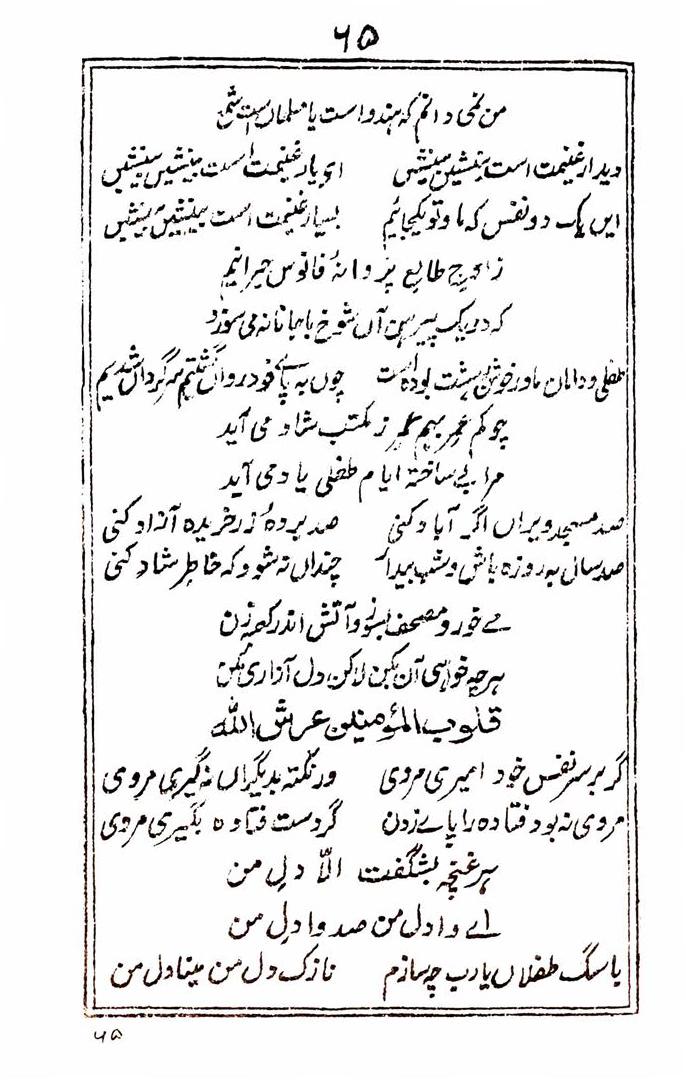 ۶۵
من نمی دانم که هندو است یا مسلماں است شمع
دیدار غنیمت است بنشیں بنشیں ای یار غنیمت است بنشیں بنشیں
ایں یک دو نفس که ما و تو یکجائیم بسیار غنیمت است بنشیں بنشیں
ز طالع پروانهٔ فانوس حیرانیم
که در یک پیرہن آں شوخ با جانانه می سوزد
طفلی و دامان مادر خوش بہشت بوده است چوں به پائے خود رواں گشتیم سرگرداں شدیم
چو کم عمر بہم ز مکتب شاد می آید
مرا بی ساخته ایام طفلی یاد می آید
صد مسجد ویراں اگر آباد کنی صد بردهٔ زر خریده آزاد کنی
صد سالی به روزه باش و شب بیدار چنداں نه شود که خاطر شاد کنی
مے خور و مصحف بسوز و آتش اندر کعبه زن
ہر چه خواہی آن بکن لاکن دل آزاری مکن
قلوب المؤمنین عرش الله
گر بر سر نفس خود امیری مردی ور نکته بدیگراں نه گیری مردی
مردی نه بود فتاده را پاے زدن گر دست فتاده بگیری مردی
ہر غنچه بشگفت الّا دلِ من
اے وا دل من صد وا دلِ من
با سنگ طفلاں یارب چه سازم نازک دل من مینا دل من
۶۵